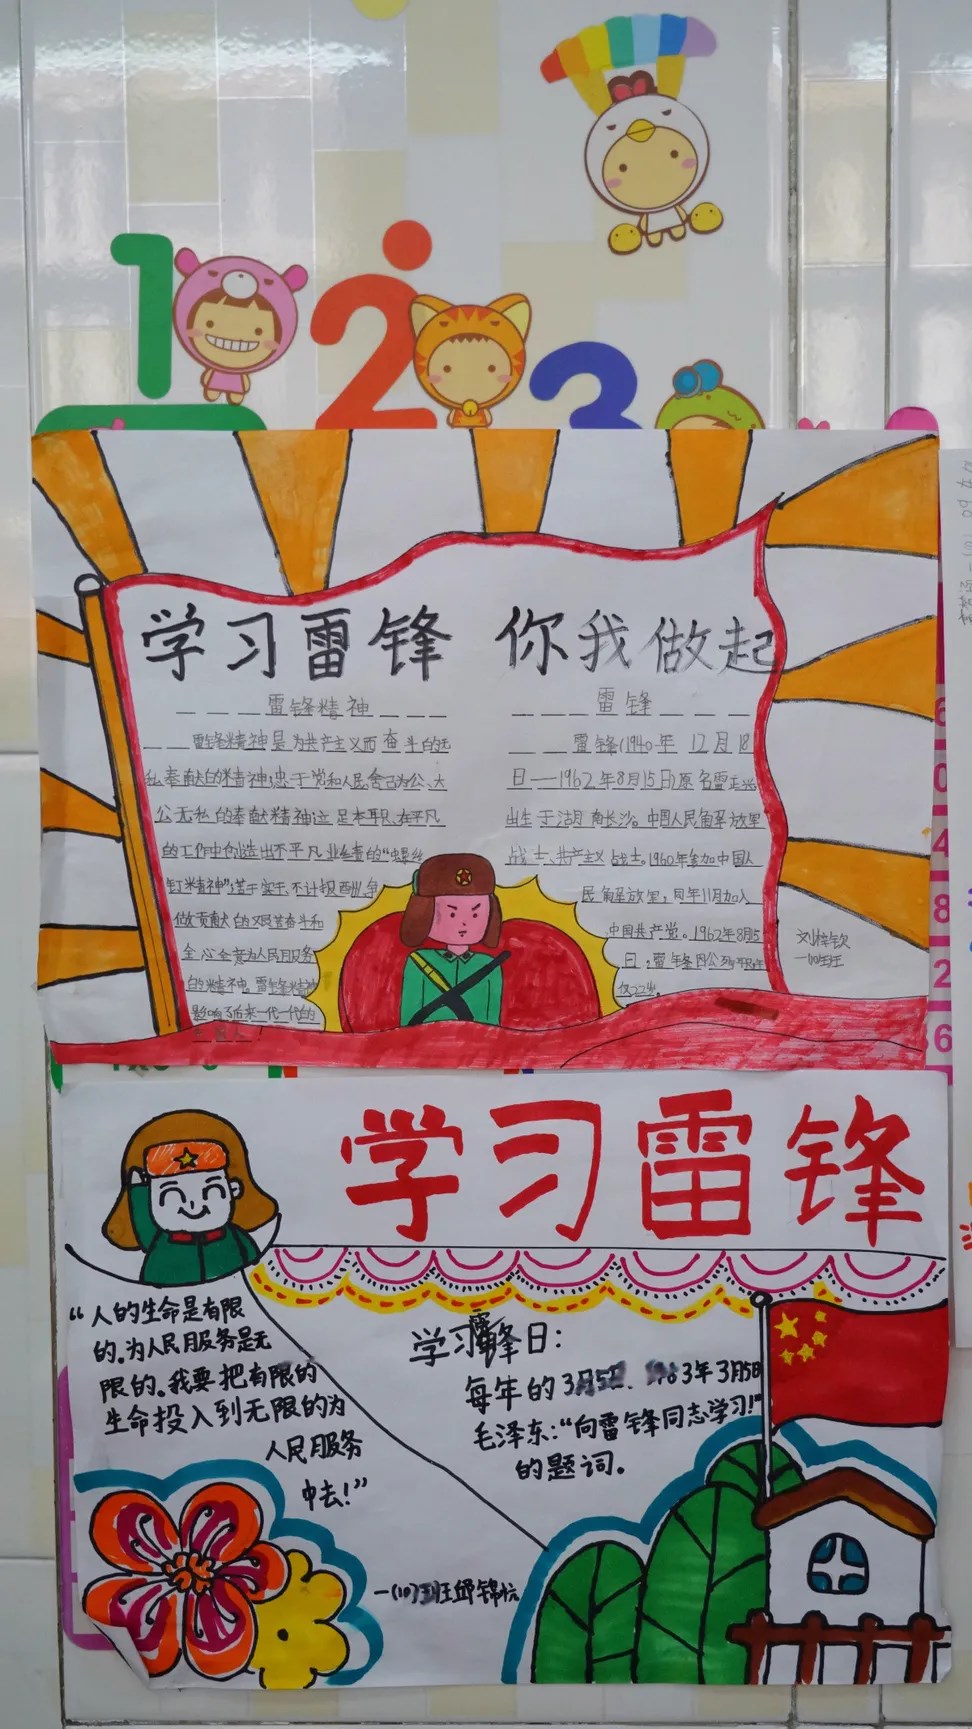 1
2
3
学习雷锋 你我做起
雷锋精神
雷锋精神是为共产主义而奋斗的无
私奉献的精神;忠于党和人民,舍己为公、大
公无私的奉献精神;立足本职、在平凡
的工作中创造出不平凡业绩的“螺丝
钉精神”;苦干实干、不计报酬,争
做贡献的艰苦奋斗和
全心全意为人民服务
的精神。雷锋精神
影响了后来一代一代的
雷锋
雷锋(1940年12月18
日——1962年8月15日)原名雷正兴
出生于湖南长沙。中国人民解放军
战士、共产主义战士。1960年参加中国人
民解放军,同年11月加入
中国共产党。1962年8月15
日,雷锋因公殉职,年
仅22岁。
刘梓钦
一10班
6
0
4
8
2
6
学习雷锋
“人的生命是有限
的。为人民服务是无
限的。我要把有限的
生命投入到无限的为
人民服务
中去!”
学习雷锋日:
每年的3月5日、1963年3月5日
毛泽东:“向雷锋同志学习!”
的题词。
一(10)班邱锦杭